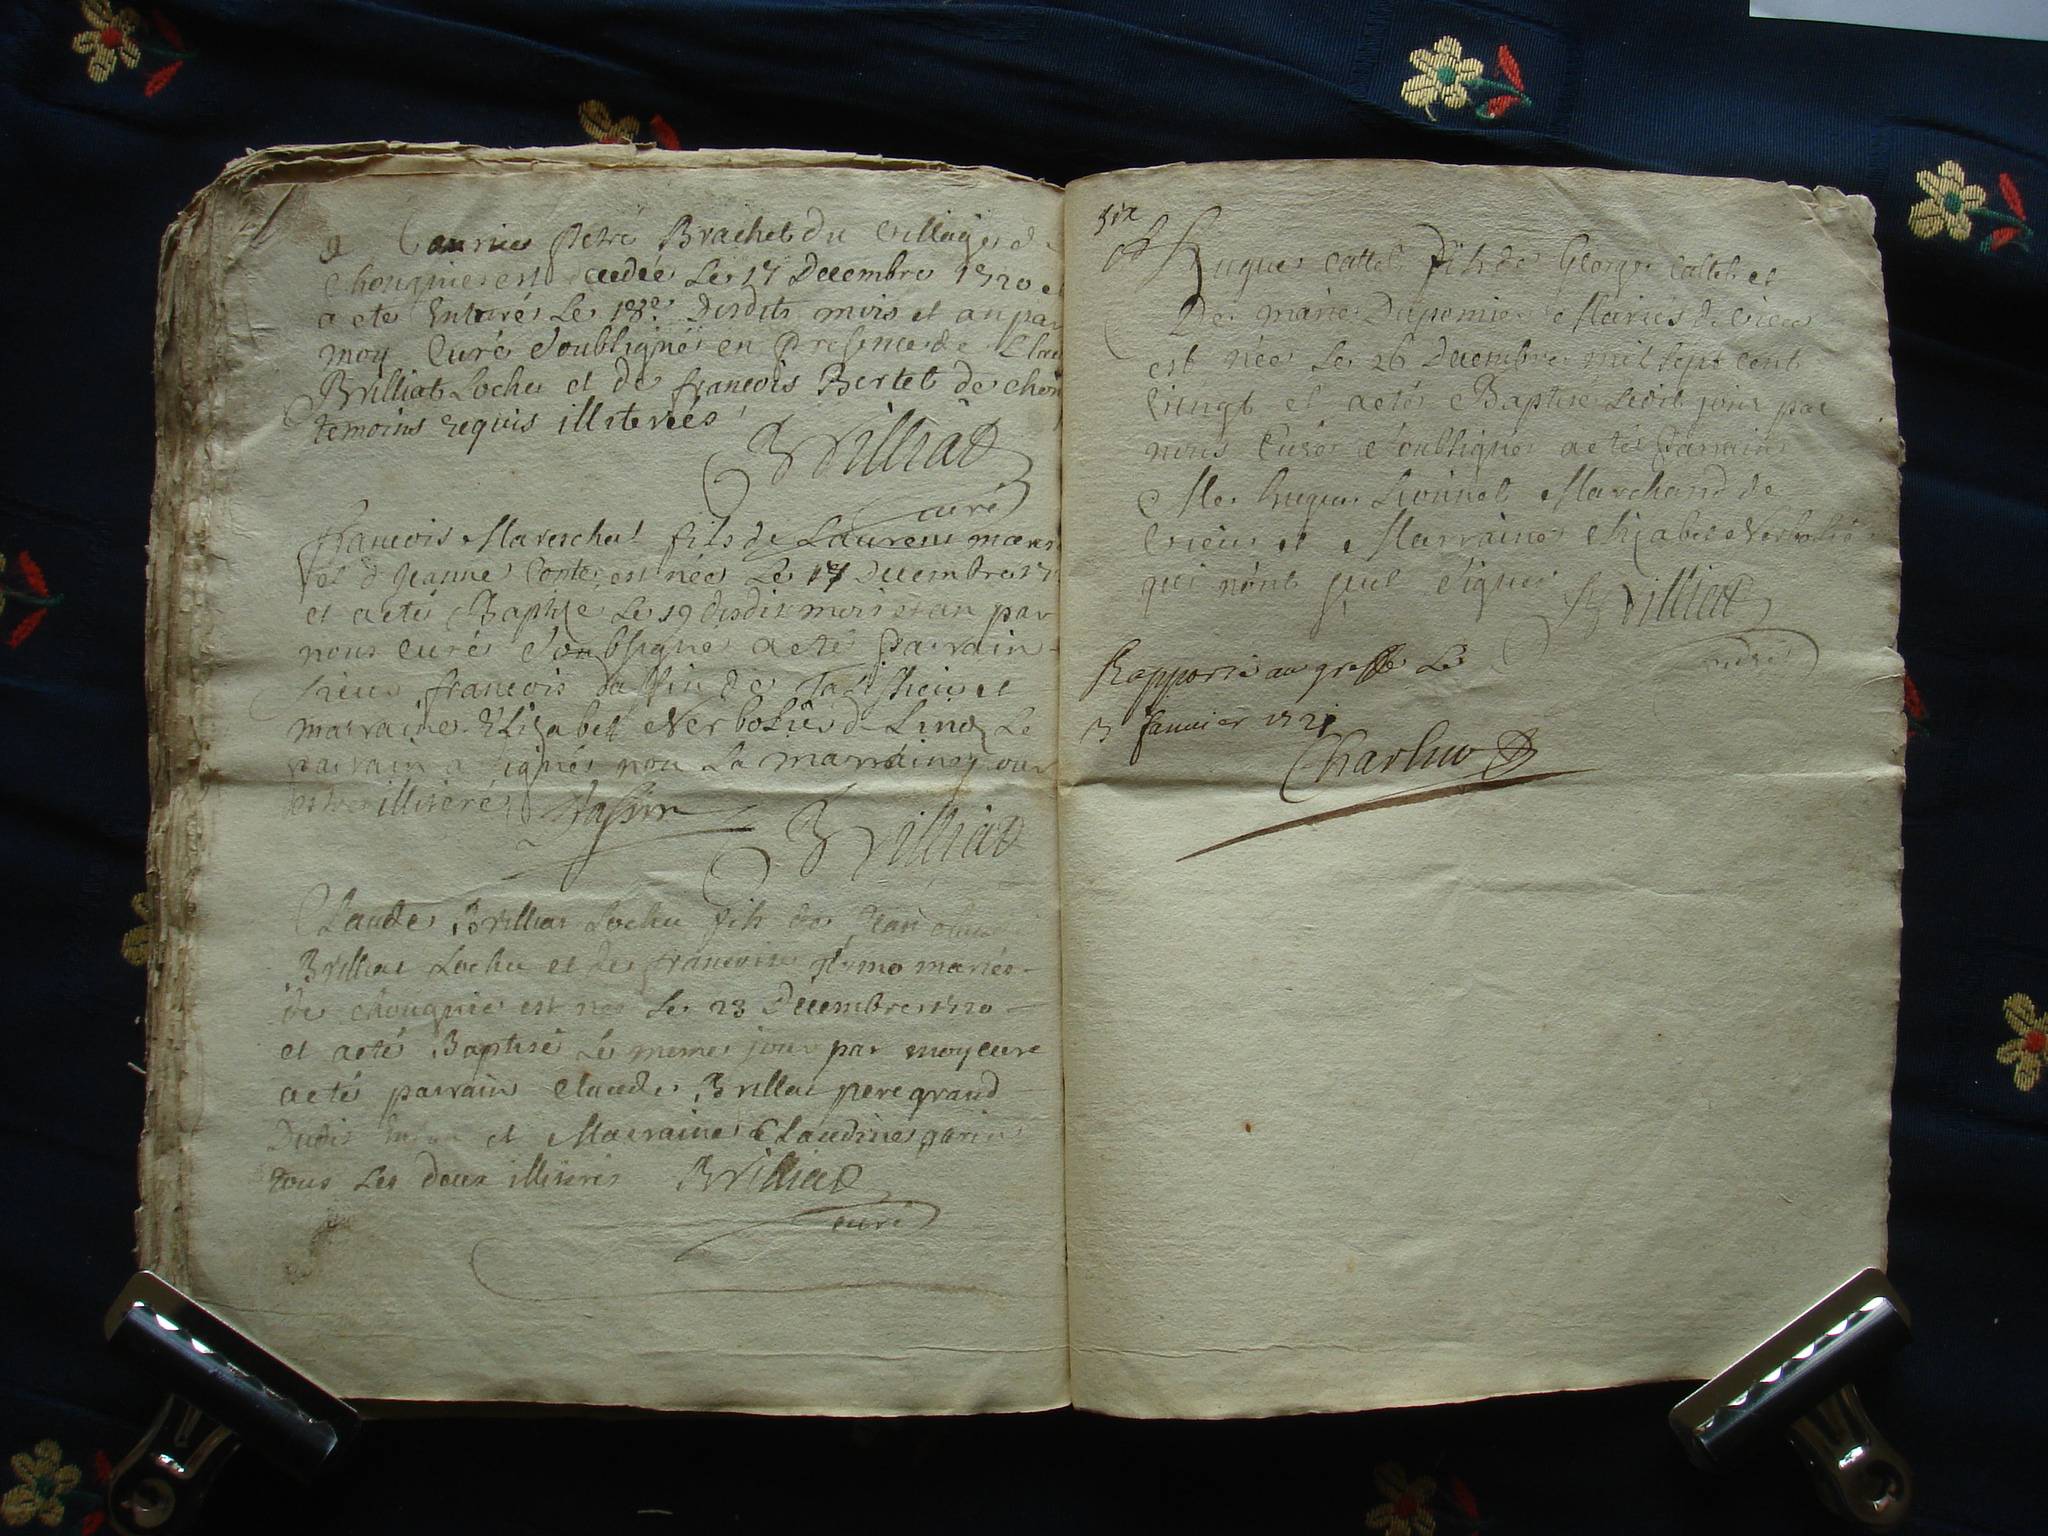 Brachet du Village d
Chougnie est decedée Le 17 Decembre 1720 e
a eté Enterré Le 18e Desdits mois et an par
moy Curé Soubsigné en presence de Clau
Brilliat Lochu et de francois Bertet de chou
temoins requis illiterés
Brilliat
curé
francois Mareschal fils de Laurens mares
et d Jeanne Conte est née Le 17 Decembre 17
et a eté Baptisé Le 19 desdits mois et an par
nous curé Soubsigné a eté parrain
sieur francois de Talissieu et
marraine Elizabet d Le
parrain a signé non La marraine pour
estre illiteré
Brilliat
Claude Brilliat Lochu fils de Jean claude
Brilliat Lochu et de francoise mariés
de chougnie est né Le 23 Decembre 1720
et a eté Baptisé Le meme jour par moy curé
a eté parrain Claude Brilliat pere grand
Dudit et Marraine Claudine
tous Les deux illiterés Brilliat
curé
six
Hugue Cattet fils de George Cattet et
De marie Mariés de Vieu
est née Le 26 Decembre mil sept cent
vingt et a eté Baptisé Ledit jour par
nous Curé Soubsigné a eté Parrain
Mr hugue Marchand de
Vieu et Marraine Elizabet
qui n'ont sceut signer Brilliat
curé
Rapporté au greffe Le
3 Janvier 1721